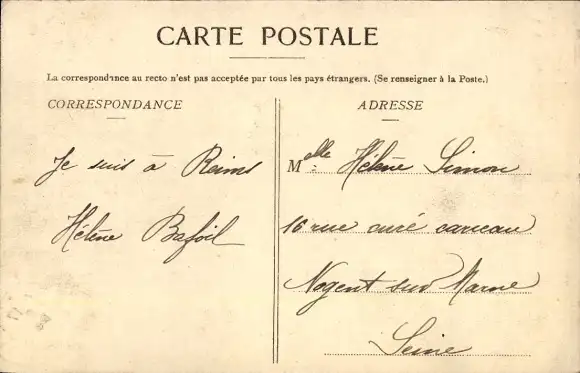 CARTE POSTALE
La correspondance au recto n'est pas acceptée par tous les pays étrangers. (Se renseigner à la Poste.)
CORRESPONDANCE
Je suis à Reims
Hélène Bafoil
ADRESSE
Melle Hélène Simon
16 rue curé carreau
Nogent sur Marne
Seine